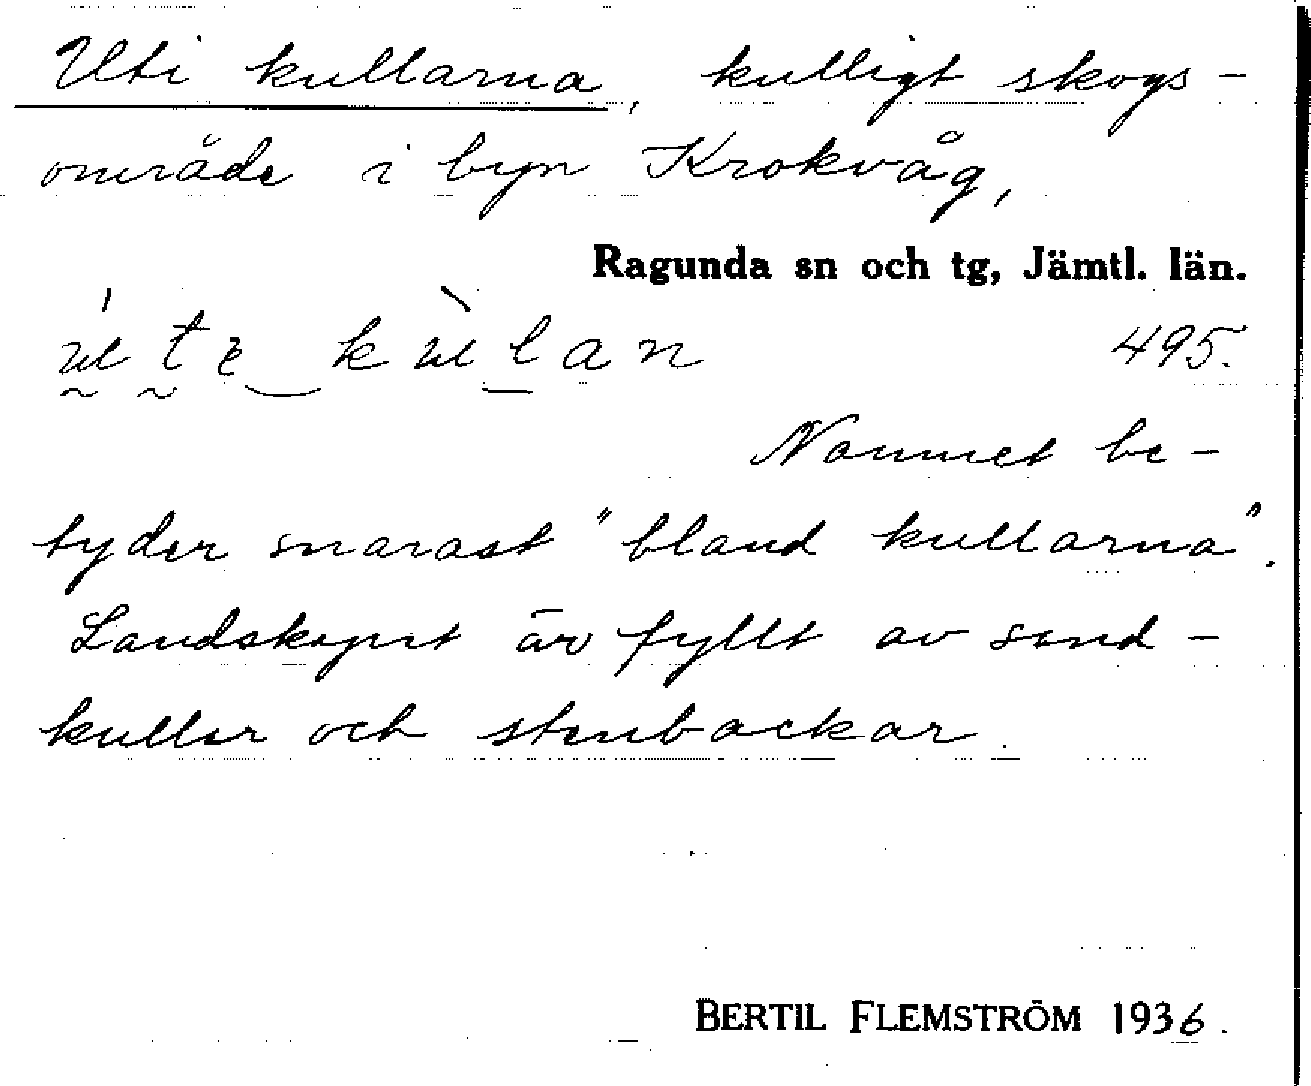 Uti kullarna, kulligt skogs-
område i byn Krokvåg,
Ragunda sn och tg, Jämtl. län.
495.
Namnet be-
tyder snarast "bland kullarna".
Landskapet är fyllt av sand-
kullar och stenbackar.
BERTIL FLEMSTRÖM 1936.